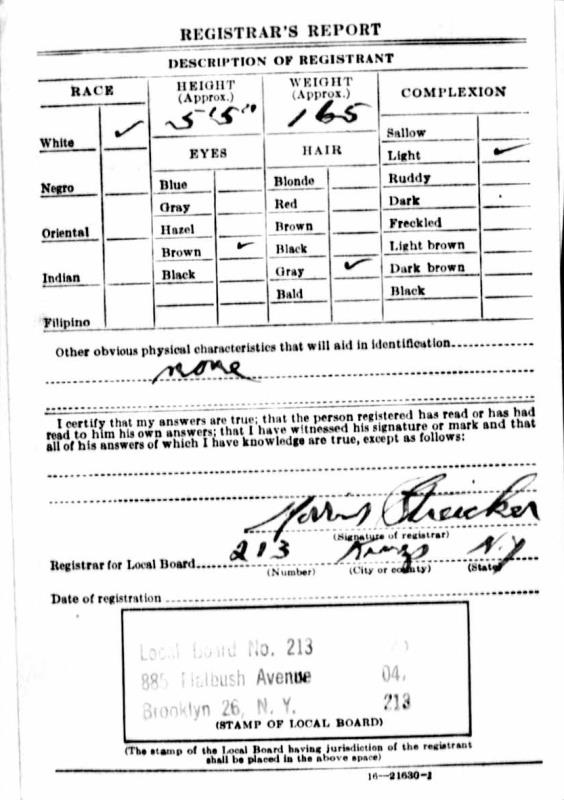 REGISTRAR'S REPORT
DESCRIPTION OF REGISTRANT
RACE
HEIGHT (Approx.)
WEIGHT (Approx.)
COMPLEXION
5'5"
165
White ✓
EYES
HAIR
Sallow
Light ✓
Negro
Blue
Blonde
Ruddy
Gray
Red
Dark
Oriental
Hazel
Brown
Freckled
Brown ✓
Black
Light brown
Indian
Black
Gray ✓
Dark brown
Bald
Black
Filipino
Other obvious physical characteristics that will aid in identification
none
I certify that my answers are true; that the person registered has read or has had
read to him his own answers; that I have witnessed his signature or mark and that
all of his answers of which I have knowledge are true, except as follows:
Morris Streicker
(Signature of registrar)
Registrar for Local Board 213 Kings N.Y
(Number) (City or county) (State)
Date of registration
Local Board No. 213
885 Flatbush Avenue 04,
Brooklyn 26, N. Y. 213
(STAMP OF LOCAL BOARD)
(The stamp of the Local Board having jurisdiction of the registrant
shall be placed in the above space)
16—21630-1